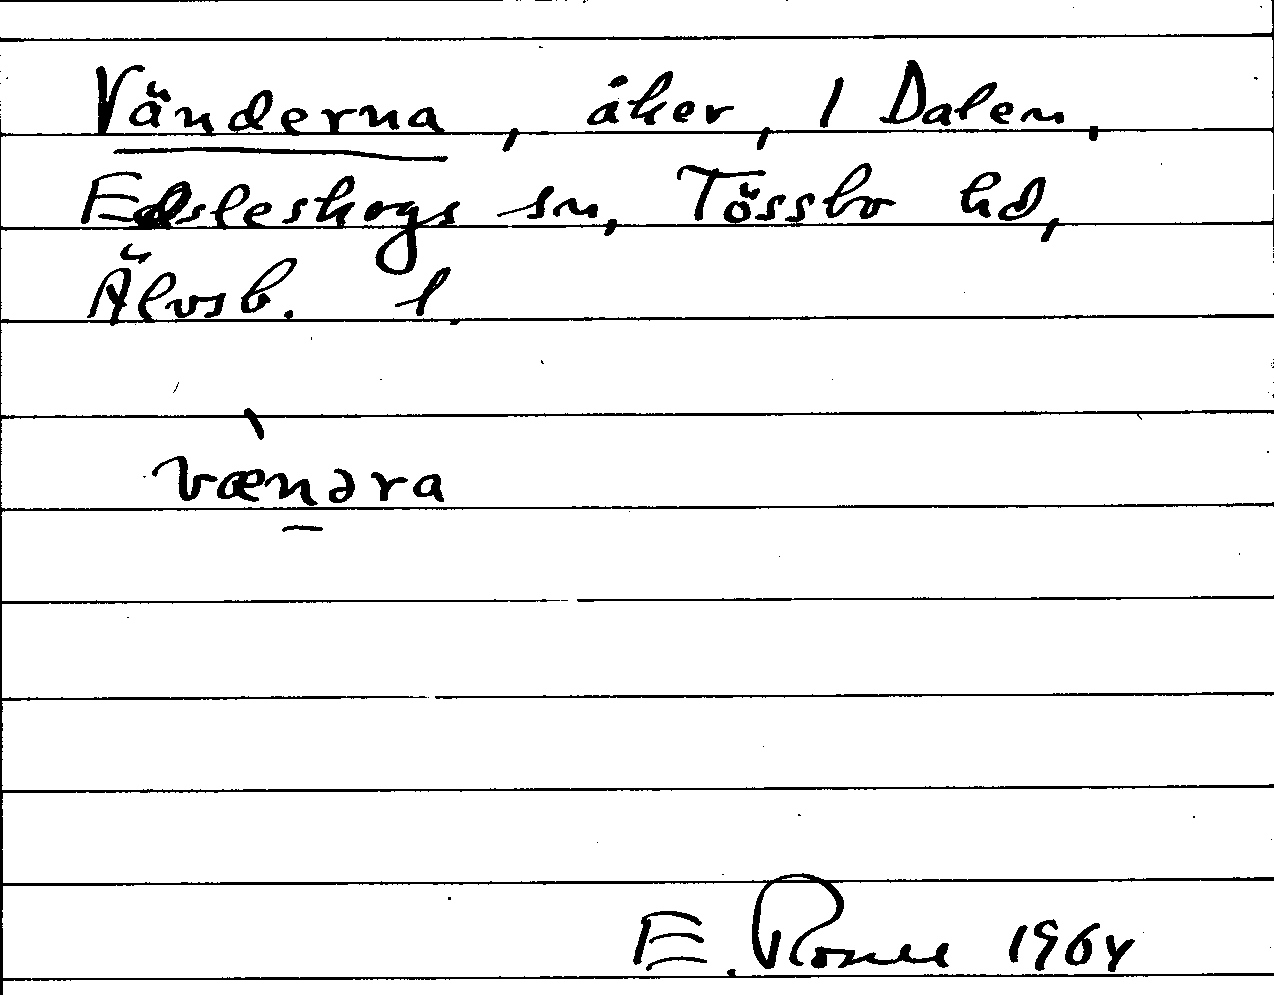 Vänderna, åker, 1 Dalen,
Edsleskogs sn, Tössbo hd,
Älvsb. l.
vænəra
E. Rosell 1964